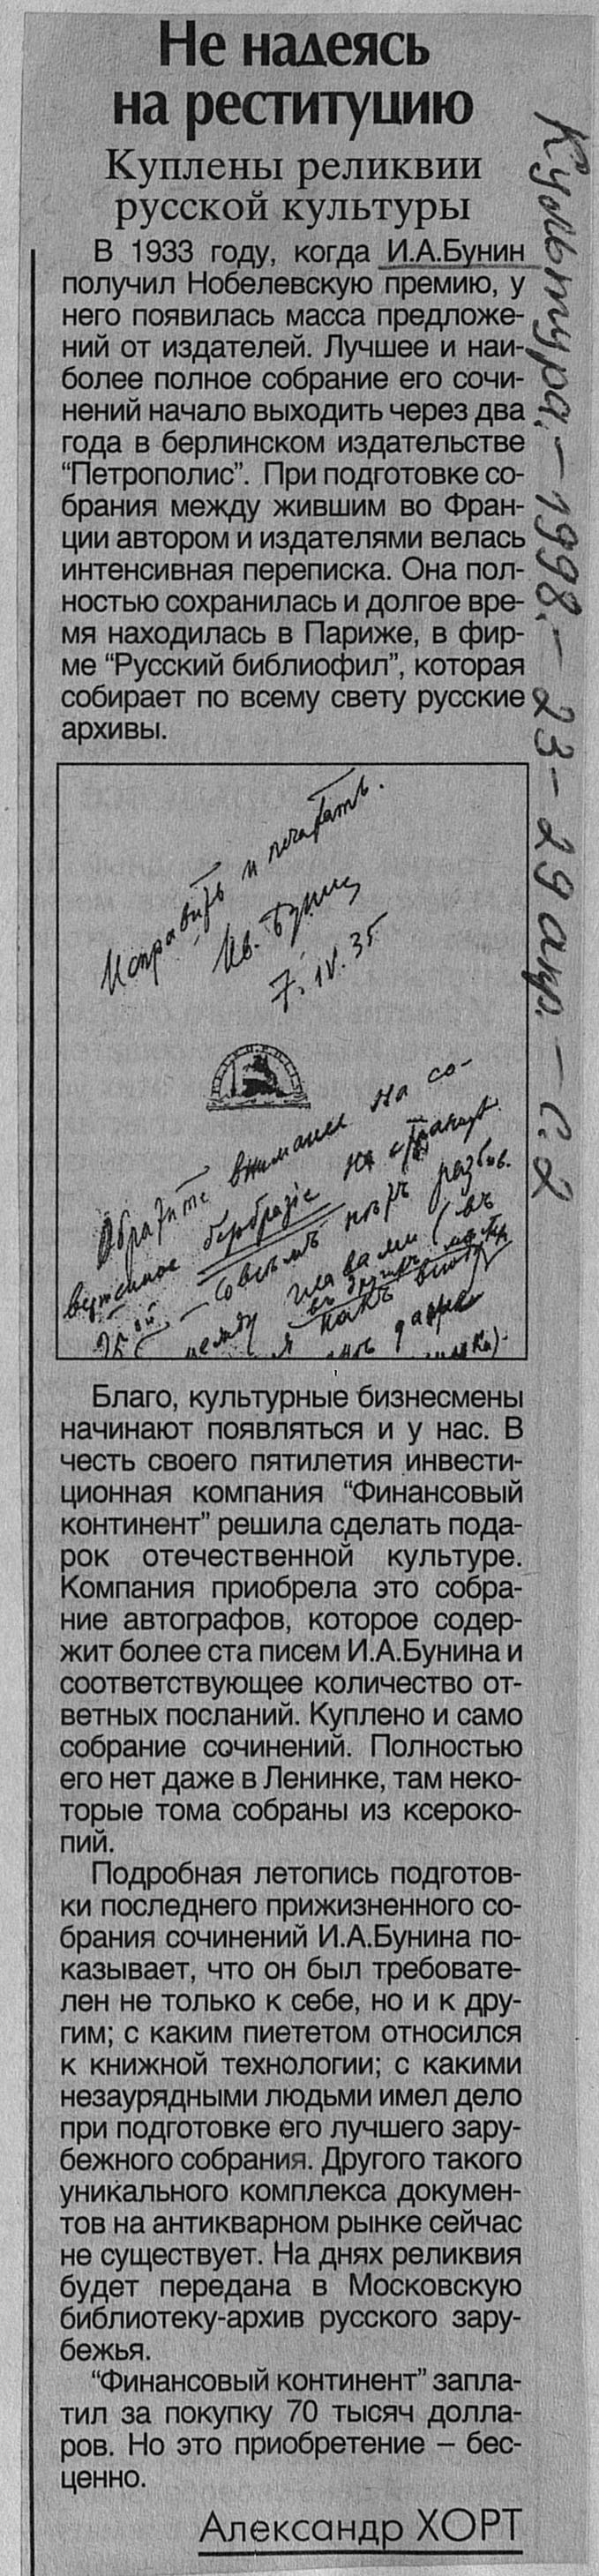 Не надеясь
на реституцию
Куплены реликвии
русской культуры
В 1933 году, когда И.А.Бунин
получил Нобелевскую премию, у
него появилась масса предложе-
ний от издателей. Лучшее и наи-
более полное собрание его сочи-
нений начало выходить через два
года в берлинском издательстве
“Петрополис”. При подготовке со-
брания между жившим во Фран-
ции автором и издателями велась
интенсивная переписка. Она пол-
ностью сохранилась и долгое вре-
мя находилась в Париже, в фир-
ме “Русский библиофил”, которая
собирает по всему свету русские
архивы.
Исправить и печатать.
Ив. Бунин
7.IV.35
Обратите внимание на со-
безобразiе на
совсемъ нѣтъ разбив.
между главами (въ
Благо, культурные бизнесмены
начинают появляться и у нас. В
честь своего пятилетия инвести-
ционная компания “Финансовый
континент” решила сделать пода-
рок отечественной культуре.
Компания приобрела это собра-
ние автографов, которое содер-
жит более ста писем И.А.Бунина и
соответствующее количество от-
ветных посланий. Куплено и само
собрание сочинений. Полностью
его нет даже в Ленинке, там неко-
торые тома собраны из ксероко-
пий.
Подробная летопись подготов-
ки последнего прижизненного со-
брания сочинений И.А.Бунина по-
казывает, что он был требовате-
лен не только к себе, но и к дру-
гим; с каким пиететом относился
к книжной технологии; с какими
незаурядными людьми имел дело
при подготовке его лучшего зару-
бежного собрания. Другого такого
уникального комплекса докумен-
тов на антикварном рынке сейчас
не существует. На днях реликвия
будет передана в Московскую
библиотеку-архив русского зару-
бежья.
“Финансовый континент” запла-
тил за покупку 70 тысяч долла-
ров. Но это приобретение – бес-
ценно.
Александр ХОРТ
Культура.–1998.–23–29 апр.–с.2